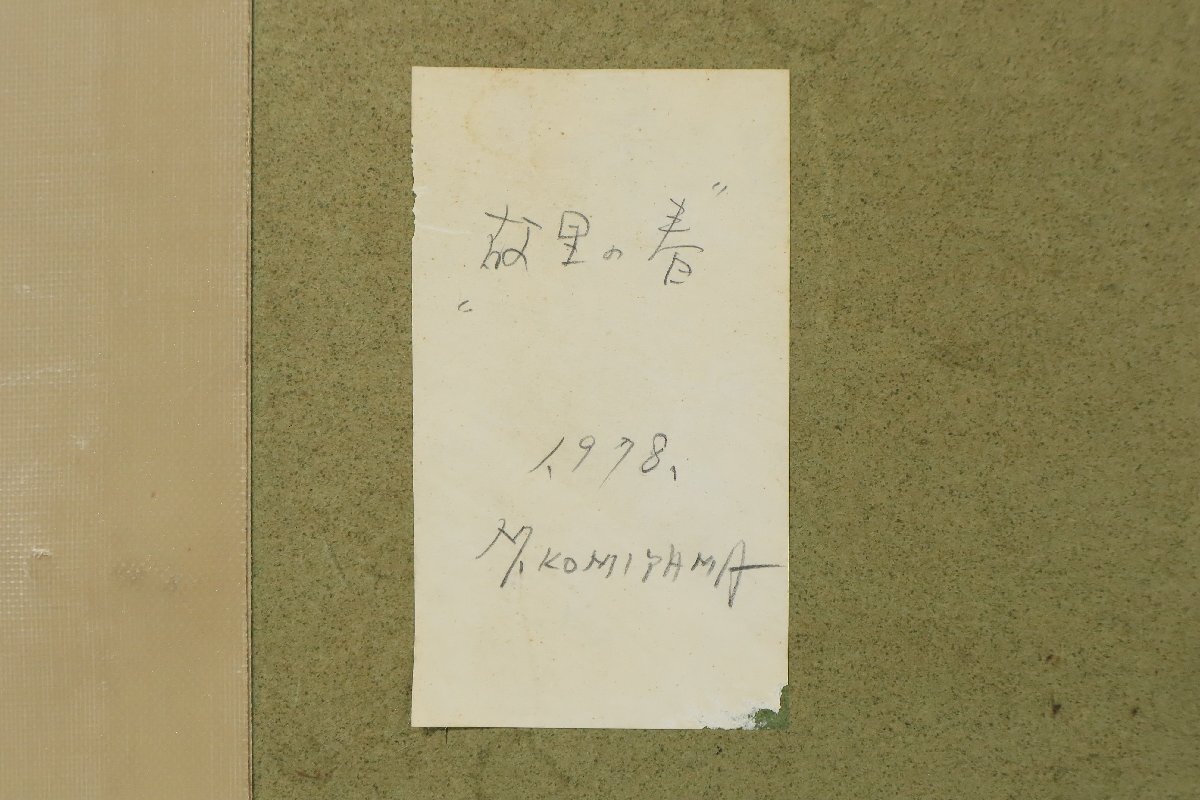 "故里の春"
1978,
M. KOMIYAMA